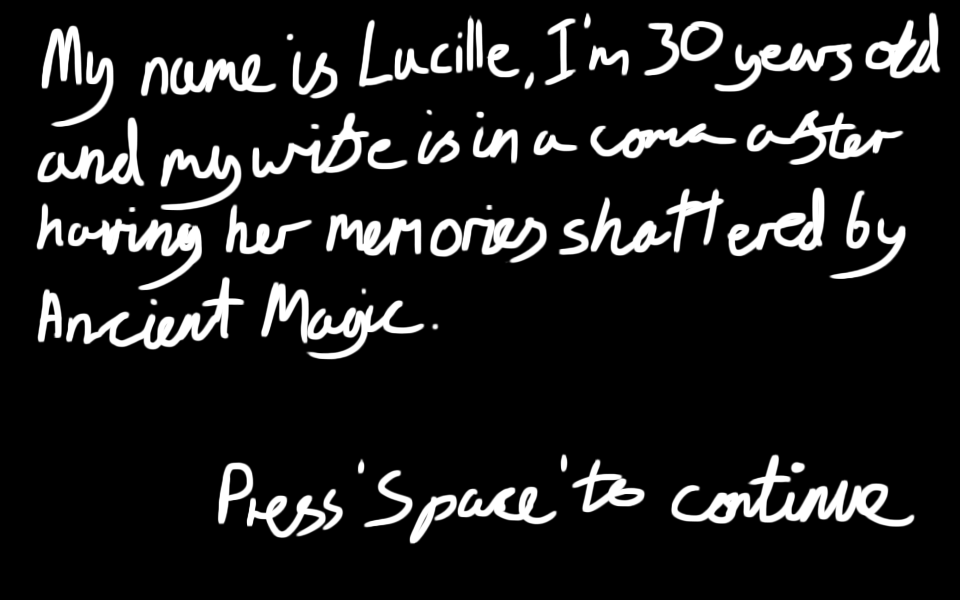 My name is Lucille, I'm 30 years old
and my wife is in a coma after
having her memories shattered by
Ancient Magic.
Press 'Space' to continue